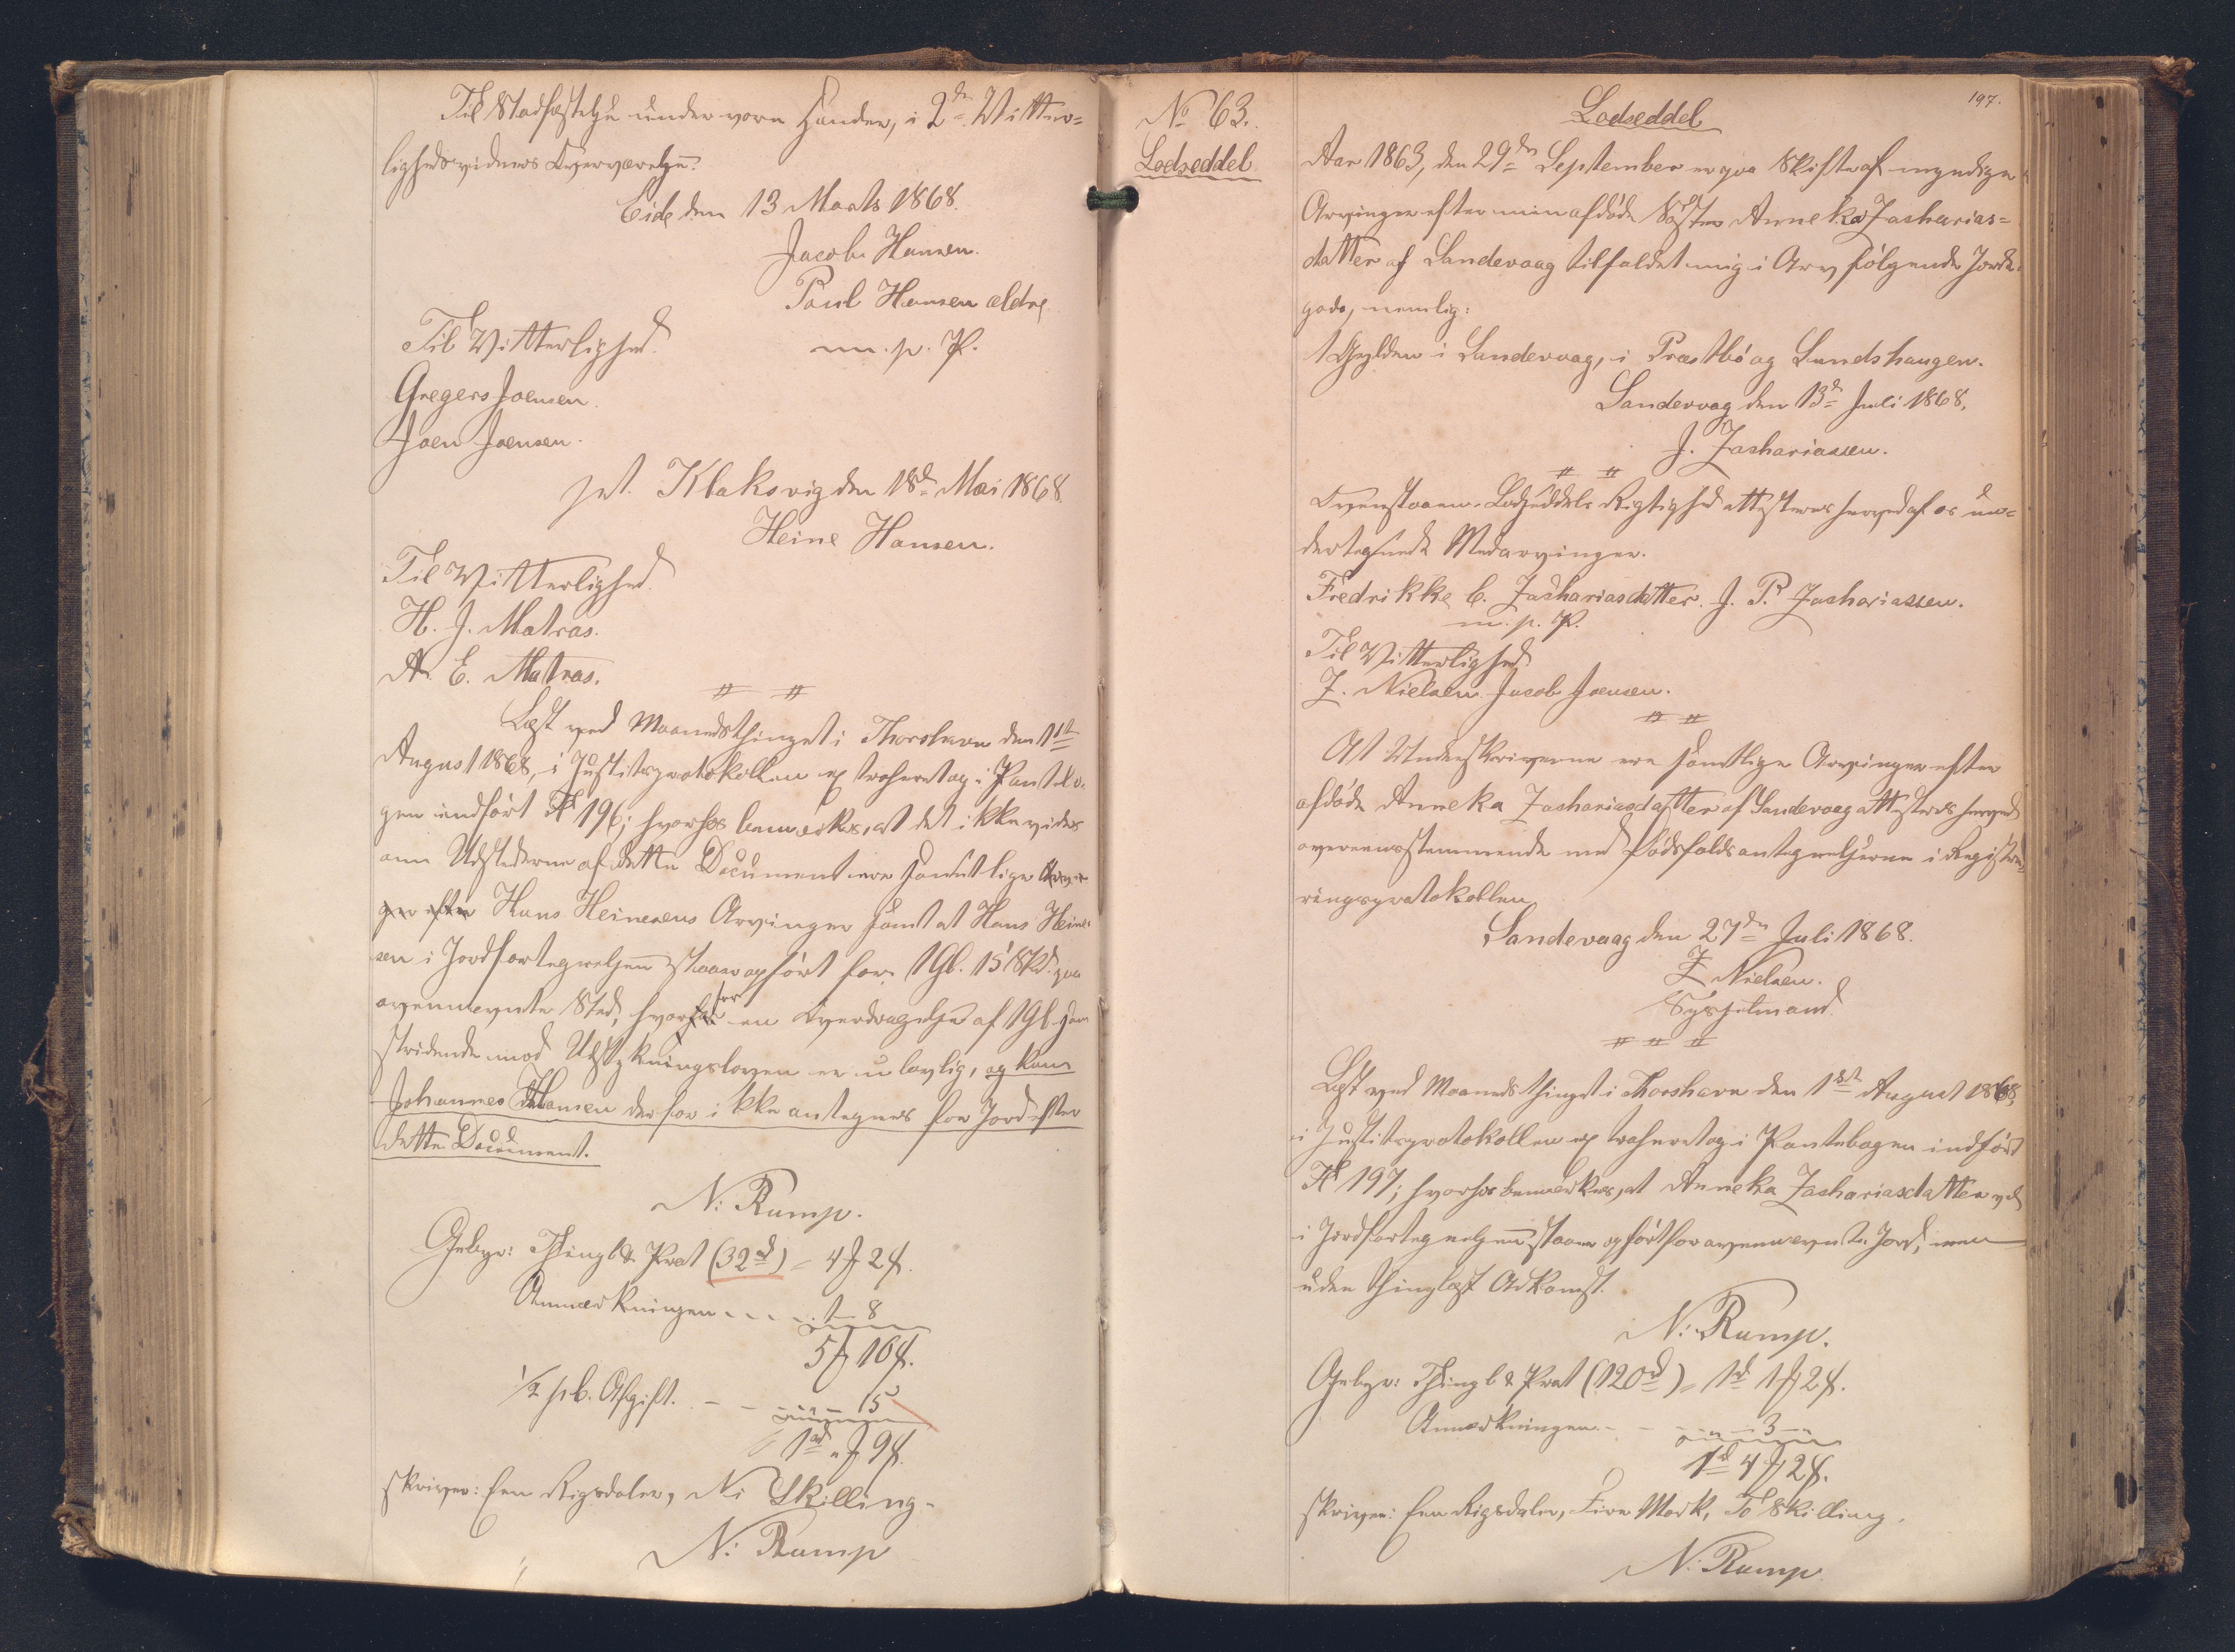 Til Stadfæstelse under vore Hænder, i 2de Vitter=
lighedsvidners Overværelse.
Eide den 13 Marts 1868.
Jacob Hansen.
Poul Hansen ældre
m. p. P.
Til Vitterlighed.
Gregers Joensen.
Joen Joensen.
pt. Klaksvig den 18d Mai 1868.
Heine Hansen.
Til Vitterlighed.
H. J. Matras.
A. E. Matras.
Læst ved Maanedsthinget i Thorshavn den 1st
August 1868, i Justitsprotokollen extraheret og i Pantebo=
gen indført Fol 196; hvorhos bemærkes, at det ikke vides
om Udstederne af dette Document ere samtlige Arvin
ger efter Hans Heinesens Arvinger samt at Hans Heine=
sen i Jordfortegnelsen staaer opført for 1 Gl. 15 Skd. paa
ovennævnte Sted, hvorfor en Overdragelse af 1 Gl. som
stridende mod Udstykningsloven er ulovlig, og kan
Johannes Hansen derfor ikke antegnes for Jord efter
dette Document.
N: Rump.
Gebyr: Thingl & Prot (32d) = 4 ℳ 2 β.
Anmærkningen . . . . 1 - 8
5 ℳ 10 β.
1/2 pC. Afgift. - - - „ - 15
1d „ ℳ 9 β.
skriver: Een Rigsdaler, Ni Skilling.
N: Rump
No 63.
Lodseddel
197.
Lodseddel
Aar 1863, den 29de September er paa Skifte af myndige
Arvinger efter min afdøde Søster Anneka Zacharias=
datter af Sandevaag tilfaldet mig i Arv følgende Jorde=
gods, nemlig:
1 Gylden i Sandevaag, i Præstbø og Lundshaugen.
Sandevaag den 13d Juli 1868.
J. Zachariassen.
Ovenstaaende Lodseddels Rigtighed attesteres herved af os un=
dertegnede Medarvinger.
Fredrikke C. Zachariasdatter. J. P. Zachariassen.
m. p. P.
Til Vitterlighed
Z. Nielsen. Jacob Joensen.
At Underskriverne ere samtlige Arvinger efter
afdøde Anneka Zachariasdatter af Sandevaag attesteres herved
overeensstemmende med Dødsfaldsantegnelserne i Registre=
ringsprotokollen.
Sandevaag den 27de Juli 1868.
Z Nielsen.
Sysselmand.
Læst ved Maanedsthinget i Thorshavn den 1st August 1868,
i Justitsprotokollen extraheret og i Pantebogen indført
Fol 197; hvorhos bemærkes, at Anneka Zachariasdatter vel
i Jordfortegnelsen staaer opført for ovennævnte Jord, men
uden thinglæst Adkomst.
N: Rump.
Gebyr: Thingl & Prot (120d) = 1d 1 ℳ 2 β.
Anmærkningen - - - „ - 3 - „
1d 4 ℳ 2 β.
skriver: Een Rigsdaler, Fire Mark, To Skilling.
N: Rump